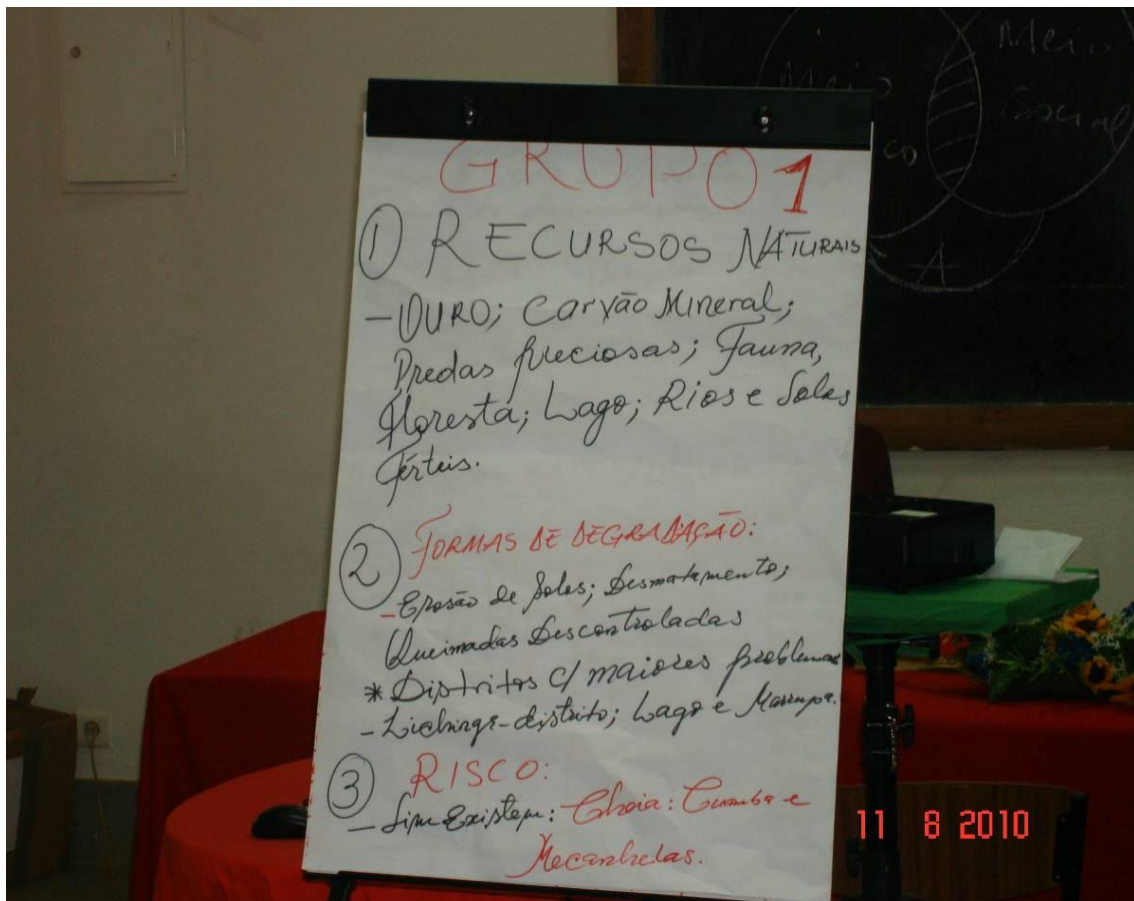 Meio
Meio
Social
co
A
GRUPO 1
① RECURSOS NATURAIS
- OURO; Carvão Mineral;
Predas preciosas; Fauna,
Floresta; Lago; Rios e Solos
Férteis.
② FORMAS DE DEGRADAÇÃO:
- Erosão de Solos; Desmatamento;
Queimadas Descontroladas
* Distritos c/ maiores problemas
- Lichinga-distrito; Lago e Marrupa.
③ RISCO:
- Sim Existem: Cheia: Cuamba e
Mecanhelas.
11 8 2010